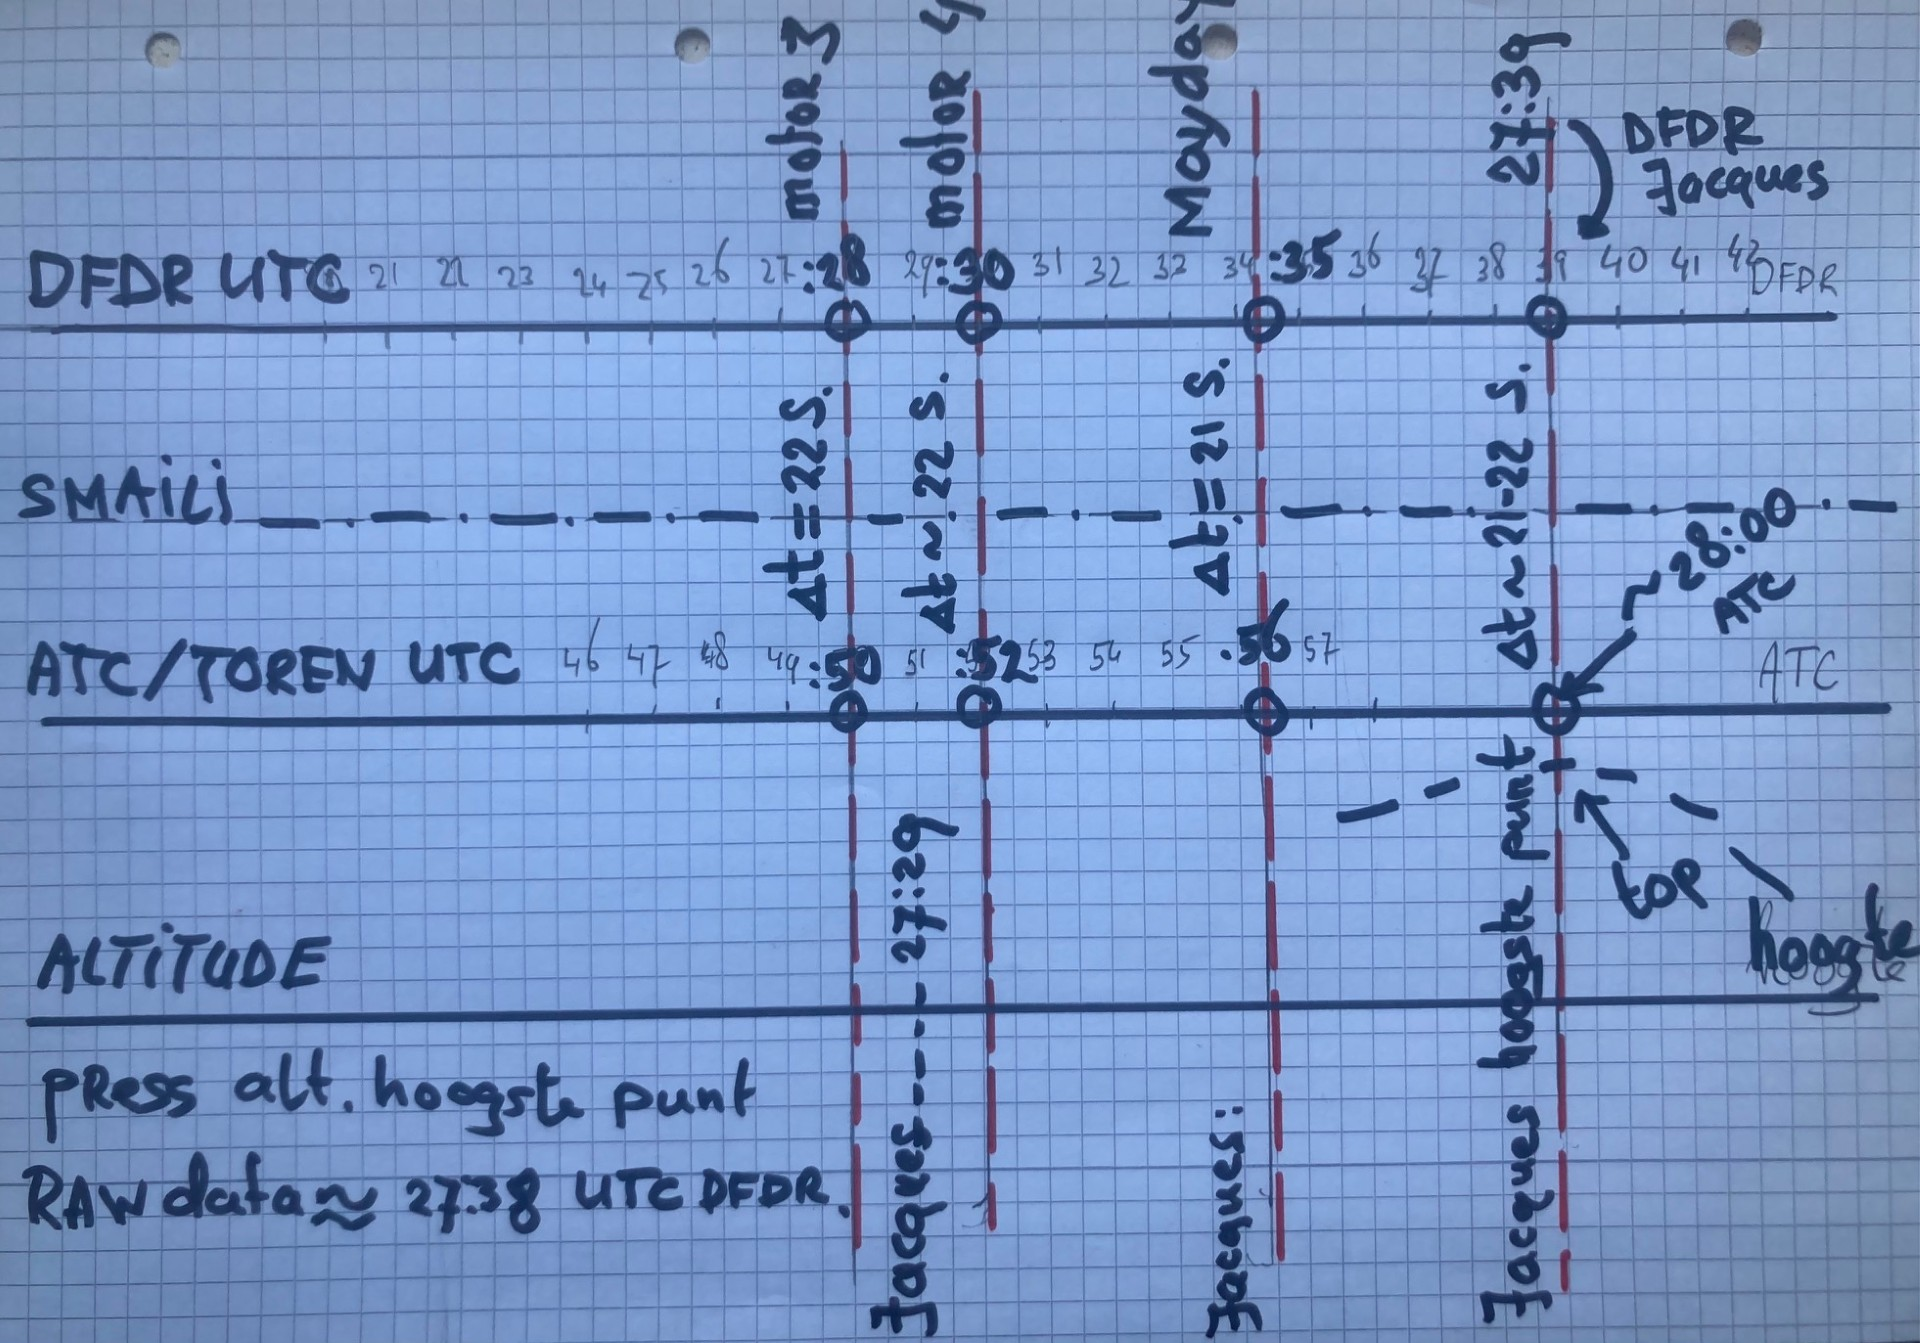 motor 3
motor 4
Mayday
27:39
DFDR
Jacques
DFDR UTC 21 22 23 24 25 26 27 :28 29 :30 31 32 33 34 :35 36 37 38 39 40 41 42 DFDR
Δt = 22 S.
Δt ~ 22 S.
Δt = 21 S.
Δt ~ 21-22 S.
SMAiLi
~ 28:00
ATC
ATC/TOREN UTC 46 47 48 49 :50 51 :52 53 54 55 .56 57 ATC
top
hoogte
ALTiTUDE
Jacques ---- 27:29
Jacques:
Jacques hoogste punt
press alt. hoogste punt
RAW data ≈ 27.38 UTC DFDR.